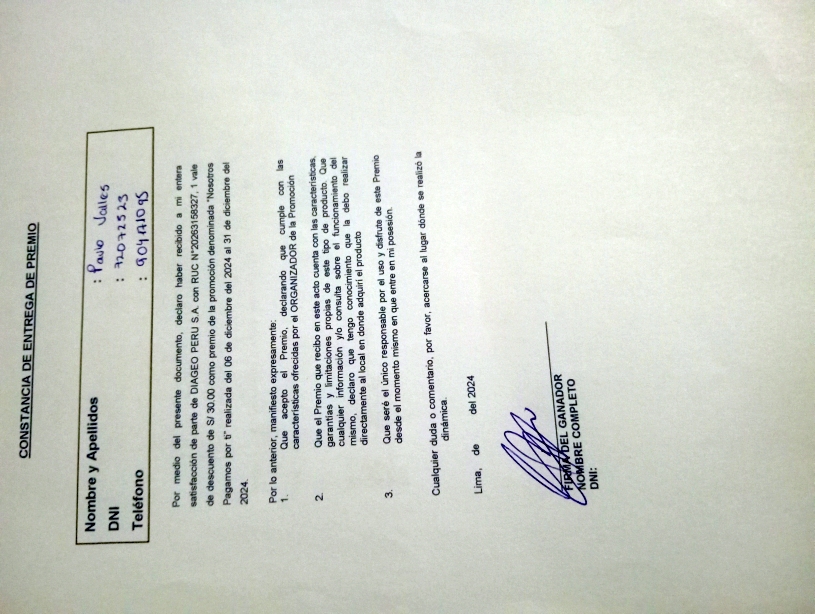 CONSTANCIA DE ENTREGA DE PREMIO
Nombre y Apellidos : Paulo Valles
DNI : 72072523
Teléfono :
Por medio del presente documento, declaro haber recibido a mi entera
satisfacción de parte de DIAGEO PERU S.A. con RUC N°20263158327, 1 vale
de descuento de S/ 30.00 como premio de la promoción denominada "Nosotros
Pagamos por ti" realizada del 06 de diciembre del 2024 al 31 de diciembre del
2024.
Por lo anterior, manifiesto expresamente:
1. Que acepto el Premio, declarando que cumple con las
características ofrecidas por el ORGANIZADOR de la Promoción
2. Que el Premio que recibo en este acto cuenta con las características,
garantías y limitaciones propias de este tipo de producto. Que
cualquier información y/o consulta sobre el funcionamiento del
mismo, declaro que tengo conocimiento que la debo realizar
directamente al local en donde adquirí el producto
3. Que seré el único responsable por el uso y disfrute de este Premio
desde el momento mismo en que entre en mi posesión.
Cualquier duda o comentario, por favor, acercarse al lugar dónde se realizó la
dinámica.
Lima, de del 2024
FIRMA DEL GANADOR
NOMBRE COMPLETO
DNI: